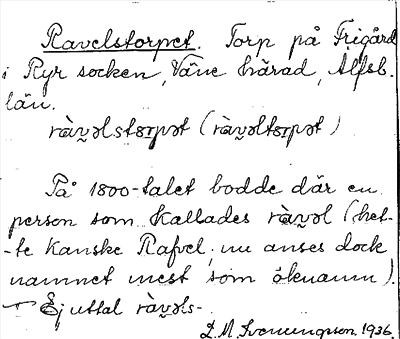 Ravelstorpet. Torp på Frigård
i Ryr socken, Väne härad, Älfsb.
län.
ràv̬əlstɤrpət (ràv̬əltɤrpət)
På 1800-talet bodde där en
person som kallades ràv̬əl (het-
-te kanske Rafvel; nu anses dock
namnet mest som öknamn).
Ej uttal ràv̬əls-
D. M. Svenungsson. 1936.